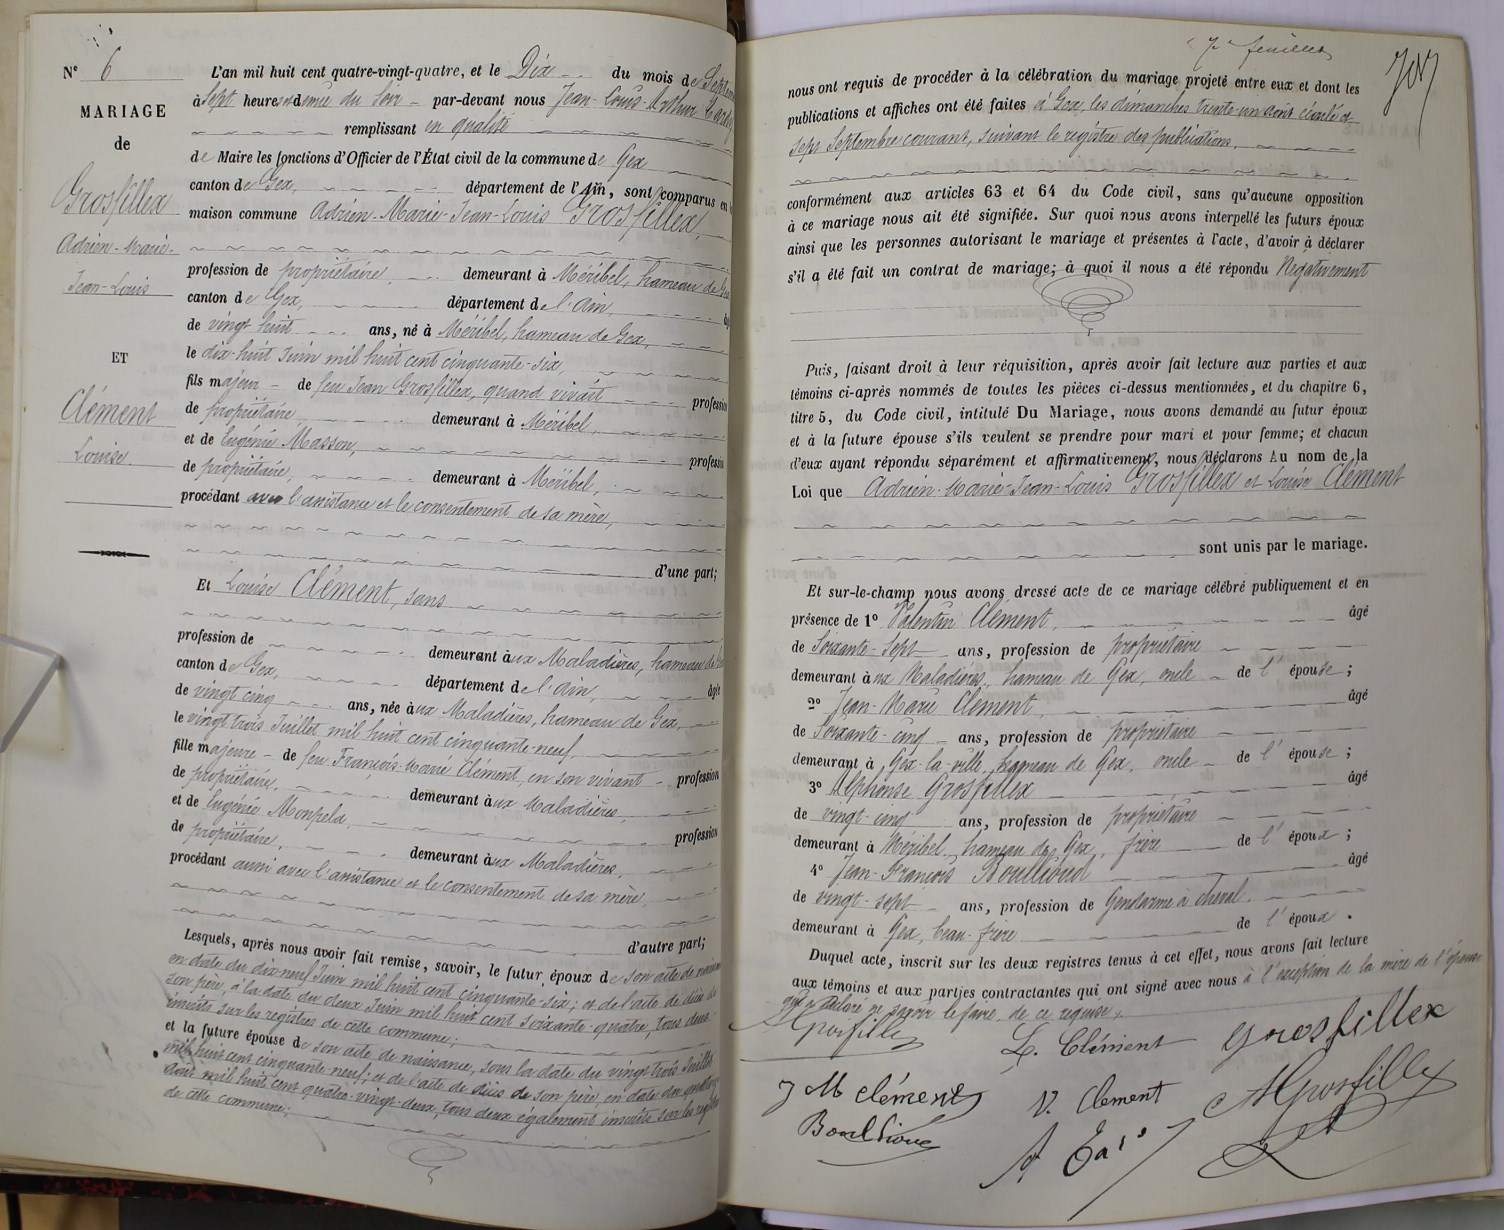 N° 6
MARIAGE
de
Grosfillex
Adrien-Marie-
Jean-Louis
ET
Clément
Louise
L'an mil huit cent quatre-vingt-quatre, et le Dix du mois de Septem
à Sept heures et demie du Soir par-devant nous Jean-Louis-Arthur
remplissant en qualité
de Maire les fonctions d'Officier de l'État civil de la commune de Gex
canton de Gex, département de l'Ain, sont comparus en la
maison commune Adrien-Marie-Jean-Louis Grosfillex,
profession de propriétaire, demeurant à Méribel, hameau de Gex
canton de Gex, département de l'Ain, âgé
de vingt huit ans, né à Méribel, hameau de Gex,
le dix-huit Juin mil huit cent cinquante-six,
fils majeur de feu Jean Grosfillex, quand vivait profession
de propriétaire demeurant à Méribel,
et de Eugénie Masson, profession
de propriétaire, demeurant à Méribel,
procédant avec l'assistance et le consentement de sa mère,
d'une part;
Et Louise Clément, sans
profession de demeurant à ux Maladières, hameau de Gex
canton de Gex, département de l'Ain, âgée
de vingt cinq ans, née à ux Maladières, hameau de Gex,
le vingt trois Juillet mil huit cent cinquante-neuf,
fille majeure de feu François-Marie Clément, en son vivant profession
de propriétaire, demeurant à ux Maladières,
et de Eugénie Monpela, profession
de propriétaire, demeurant à ux Maladières,
procédant aussi avec l'assistance et le consentement de sa mère,
d'autre part;
Lesquels, après nous avoir fait remise, savoir, le futur époux de son acte de naissance
en date du dix-neuf Juin mil huit cent cinquante-six; et de l'acte de décès de
son père, à la date du deux Juin mil huit cent soixante-quatre, tous deux
inscrits sur les registres de cette commune;
et la future épouse de son acte de naissance, sous la date du vingt trois Juillet
mil huit cent cinquante neuf; et de l'acte de décès de son père, en date du
Août mil huit cent quatre-vingt-deux, tous deux également inscrits sur les registres
de cette commune;
7e feuillet
nous ont requis de procéder à la célébration du mariage projeté entre eux et dont les
publications et affiches ont été faites à Gex, les dimanches trente-un Août écoulé et
sept Septembre courant, suivant le registre des publications,
conformément aux articles 63 et 64 du Code civil, sans qu'aucune opposition
à ce mariage nous ait été signifiée. Sur quoi nous avons interpellé les futurs époux
ainsi que les personnes autorisant le mariage et présentes à l'acte, d'avoir à déclarer
s'il a été fait un contrat de mariage; à quoi il nous a été répondu Négativement
Puis, faisant droit à leur réquisition, après avoir fait lecture aux parties et aux
témoins ci-après nommés de toutes les pièces ci-dessus mentionnées, et du chapitre 6,
titre 5, du Code civil, intitulé Du Mariage, nous avons demandé au futur époux
et à la future épouse s'ils veulent se prendre pour mari et pour femme; et chacun
d'eux ayant répondu séparément et affirmativement, nous déclarons Au nom de la
Loi que Adrien-Marie-Jean-Louis Grosfillex et Louise Clément
sont unis par le mariage.
Et sur-le-champ nous avons dressé acte de ce mariage célébré publiquement et en
présence de 1° Valentin Clément, âgé
de Soixante-Sept ans, profession de propriétaire
demeurant à ux Maladières, hameau de Gex, oncle de l'épouse;
2° Jean-Marie Clément, âgé
de Soixante-cinq ans, profession de propriétaire
demeurant à Gex-la-ville, hameau de Gex, oncle de l'épouse;
3° Alphonse Grosfillex âgé
de vingt-cinq ans, profession de propriétaire
demeurant à Méribel, hameau de Gex, frère de l'époux;
4° Jean-François Boullioud âgé
de vingt-sept ans, profession de Gendarme à cheval,
demeurant à Gex, beau-frère de l'époux.
Duquel acte, inscrit sur les deux registres tenus à cet effet, nous avons fait lecture
aux témoins et aux parties contractantes qui ont signé avec nous à l'exception de la mère de l'épouse
qui a déclaré ne savoir le faire de ce requise.
Grosfillex
L. Clément
Grosfillex
J M clément
V. Clement
AGrosfillex